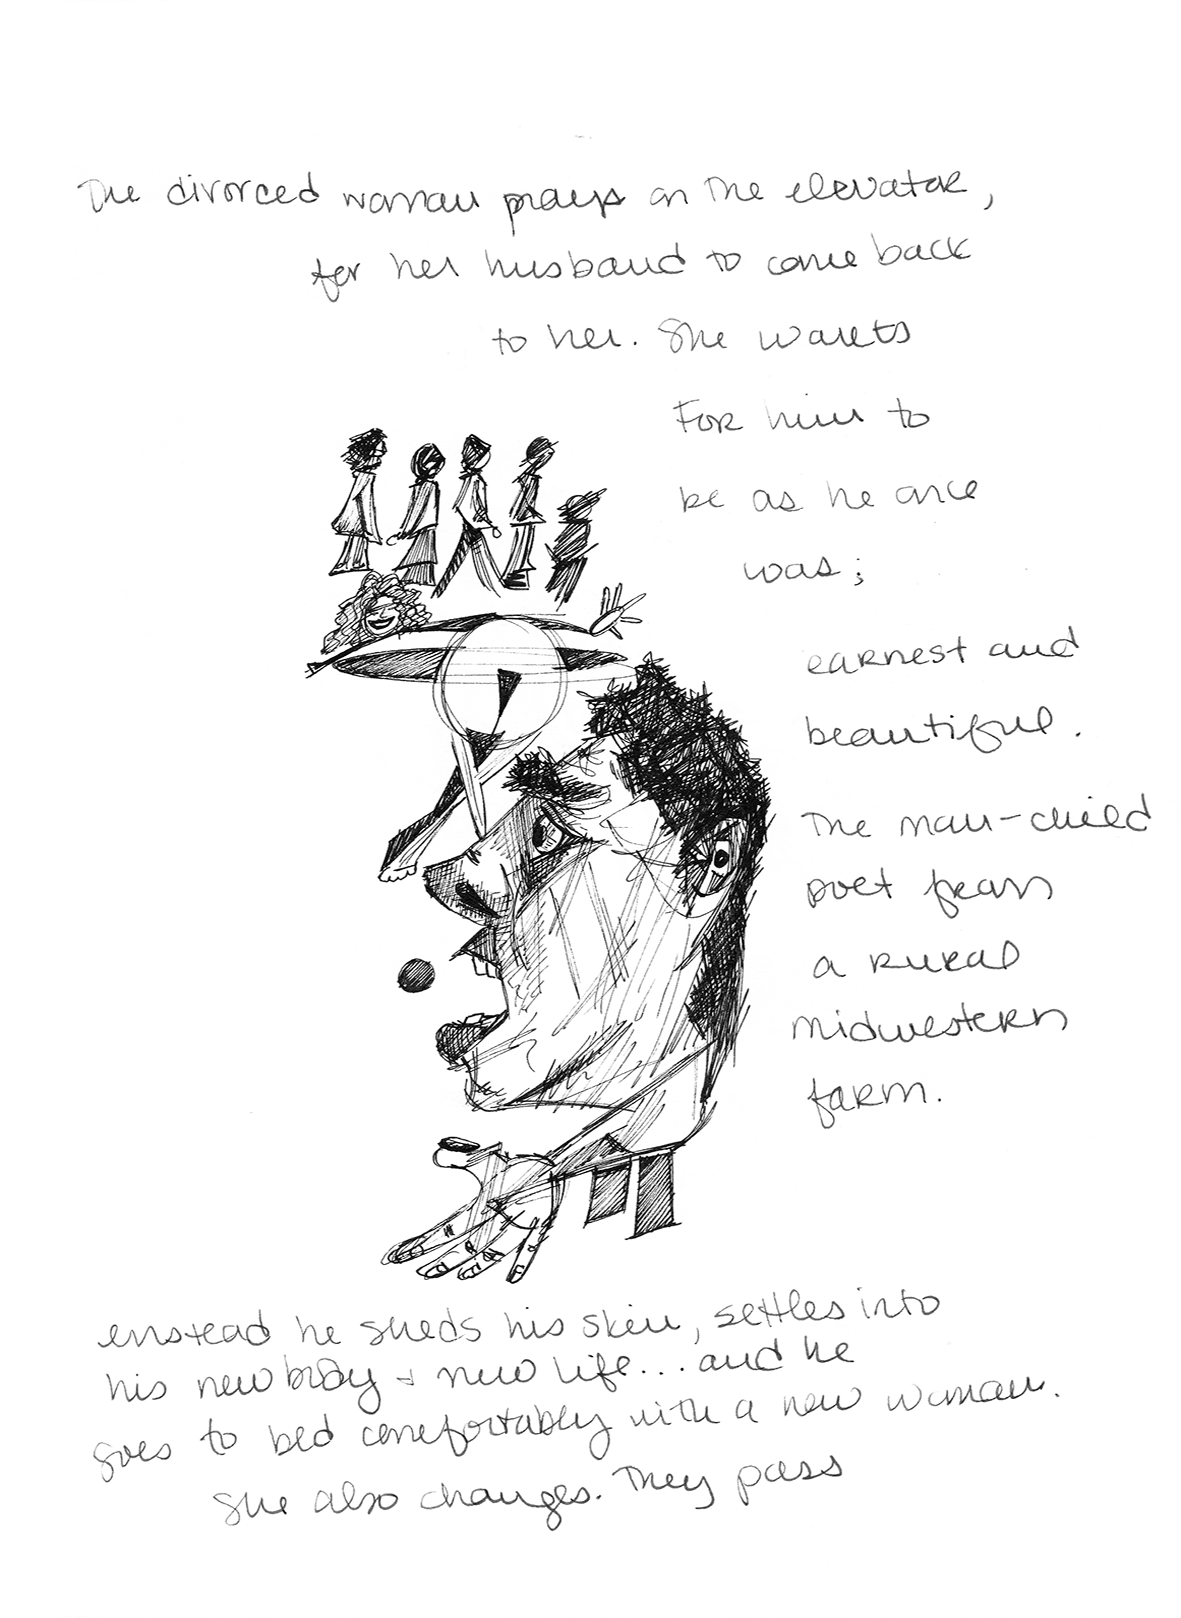 The divorced woman prays on the elevator,
for her husband to come back
to her. She wants
For him to
be as he once
was;
earnest and
beautiful.
The man-child
poet from
a rural
midwestern
farm.
instead he sheds his skin, settles into
his new body + new life... and he
goes to bed comfortably with a new woman.
She also changes. They pass